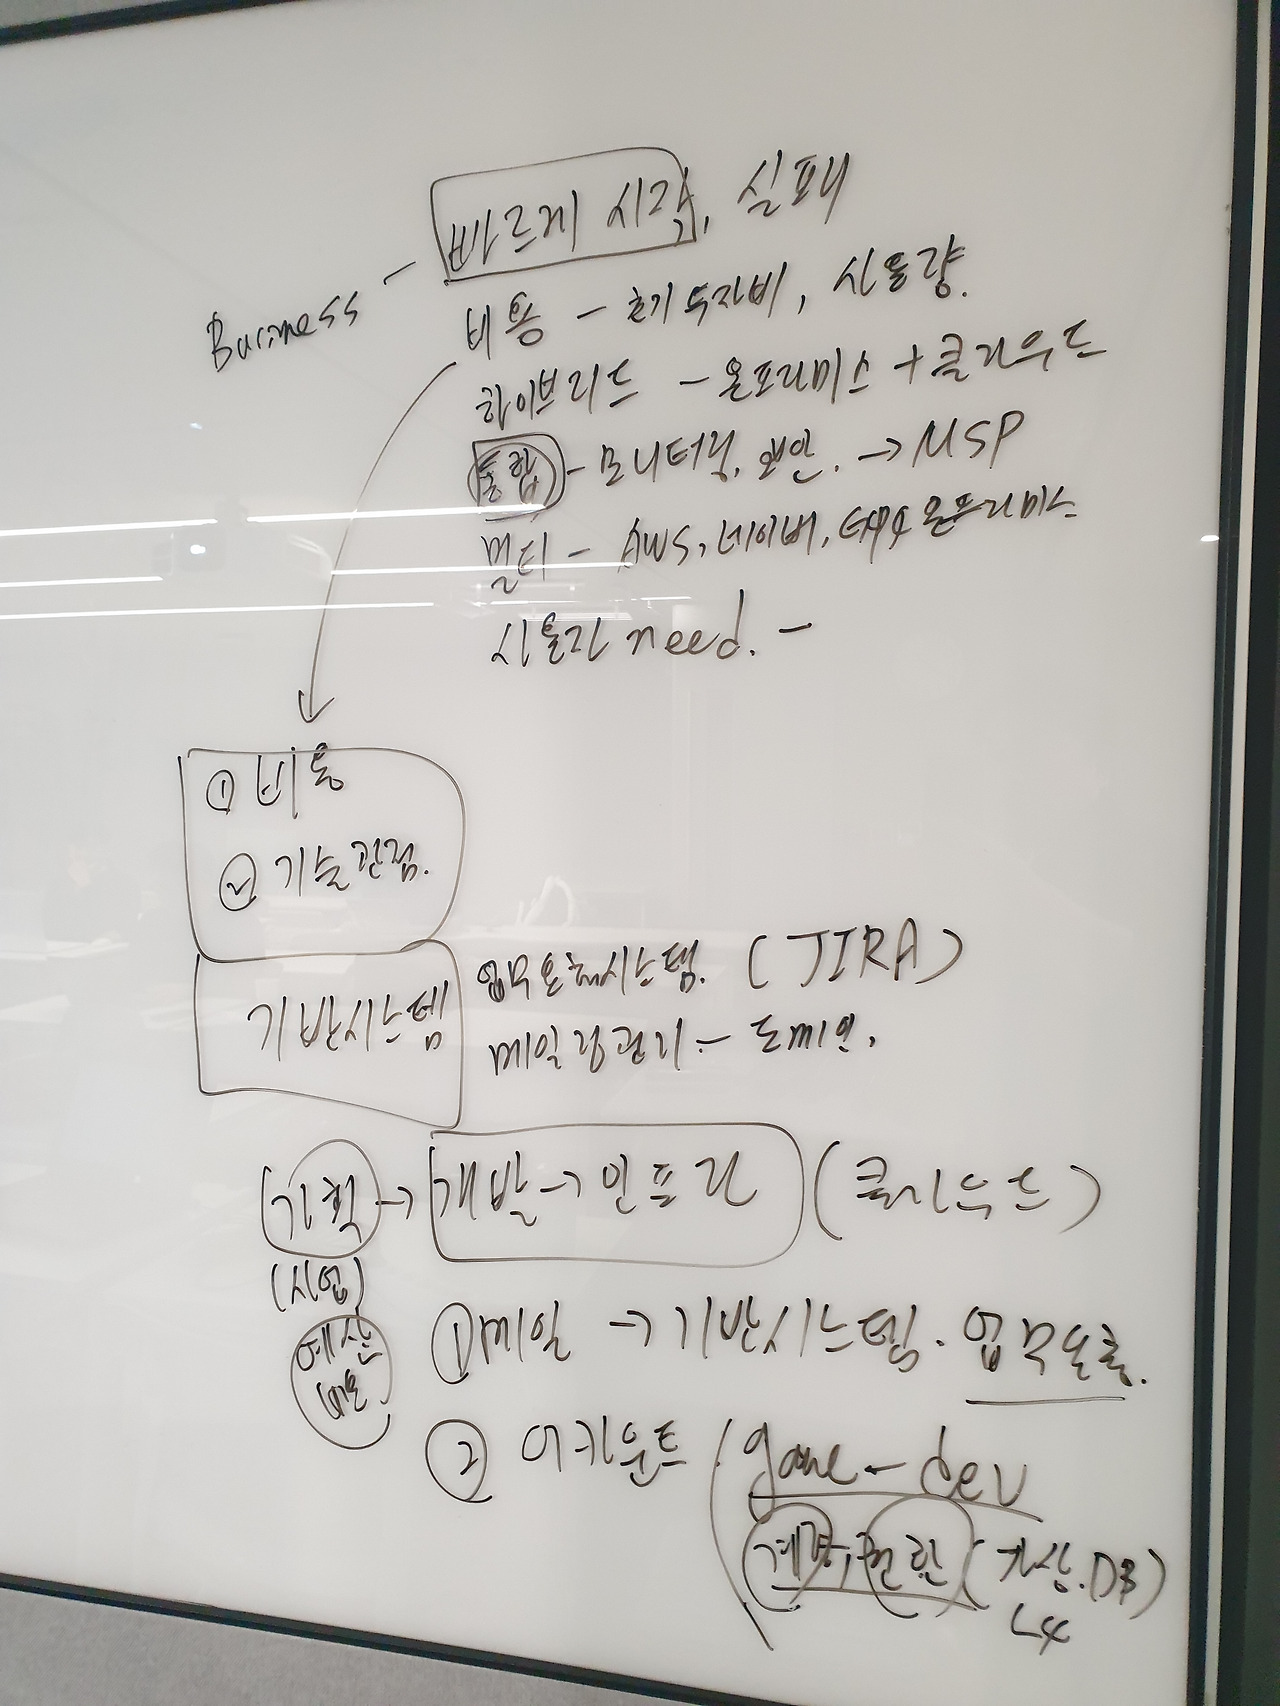 Business - 빠르게 시작, 실패
비용 - 초기투자비, 사용량.
하이브리드 - 온프라미스 + 클라우드
통합 - 모니터링, 보안. → MSP
멀티 - AWS, 네이버, 온프라미스
사용자 need. -
① 비용
② 기술관점.
기반시스템
업무요청시스템. (JIRA)
메일링관리 - 도메인.
기획 → 개발 → 인프라 (클라우드)
(사업)
예산
비용
① 메일 → 기반시스템. 업무요청.
② 어카운트 game-dev
계정, 권한 (가상.DB)
L4